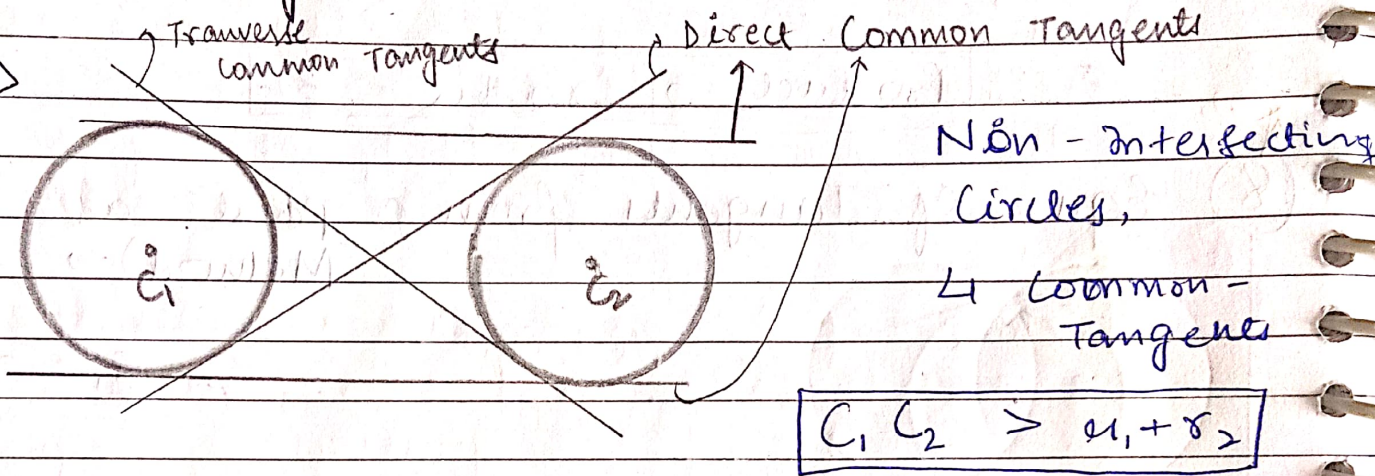 Tranverse
Common Tangents
Direct Common Tangents
Non-Intersecting
Circles,
4 Common-
Tangents
C₁
C₂
C₁ C₂ > r₁ + r₂